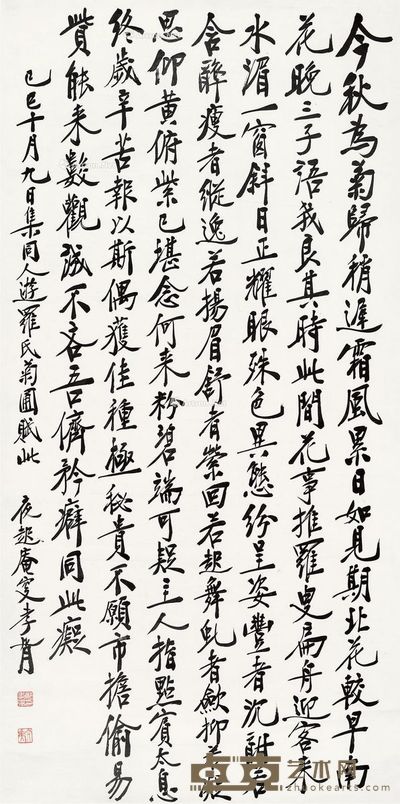 今秋為菊歸稍遲霜風累日如見期北花較早南
花晚三子語我良其時此間花事推羅叟扁舟迎客來
水湄一窗斜日正耀眼殊色異態紛呈姿豐者沉酣若
含醉瘦者縱逸若揚眉舒者縈回若起舞虬者斂抑若凝
思仰黃俯紫已堪念何來粉碧端可疑主人指點賓太息
終歲辛苦報以斯偶獲佳種極秘貴不願市擔偷易
貲能來數觀殊不吝吾儕矜癖同此癡
己巳十月九日集同人遊羅氏菊圃賦此
夜起庵叟孝胥
艺术网